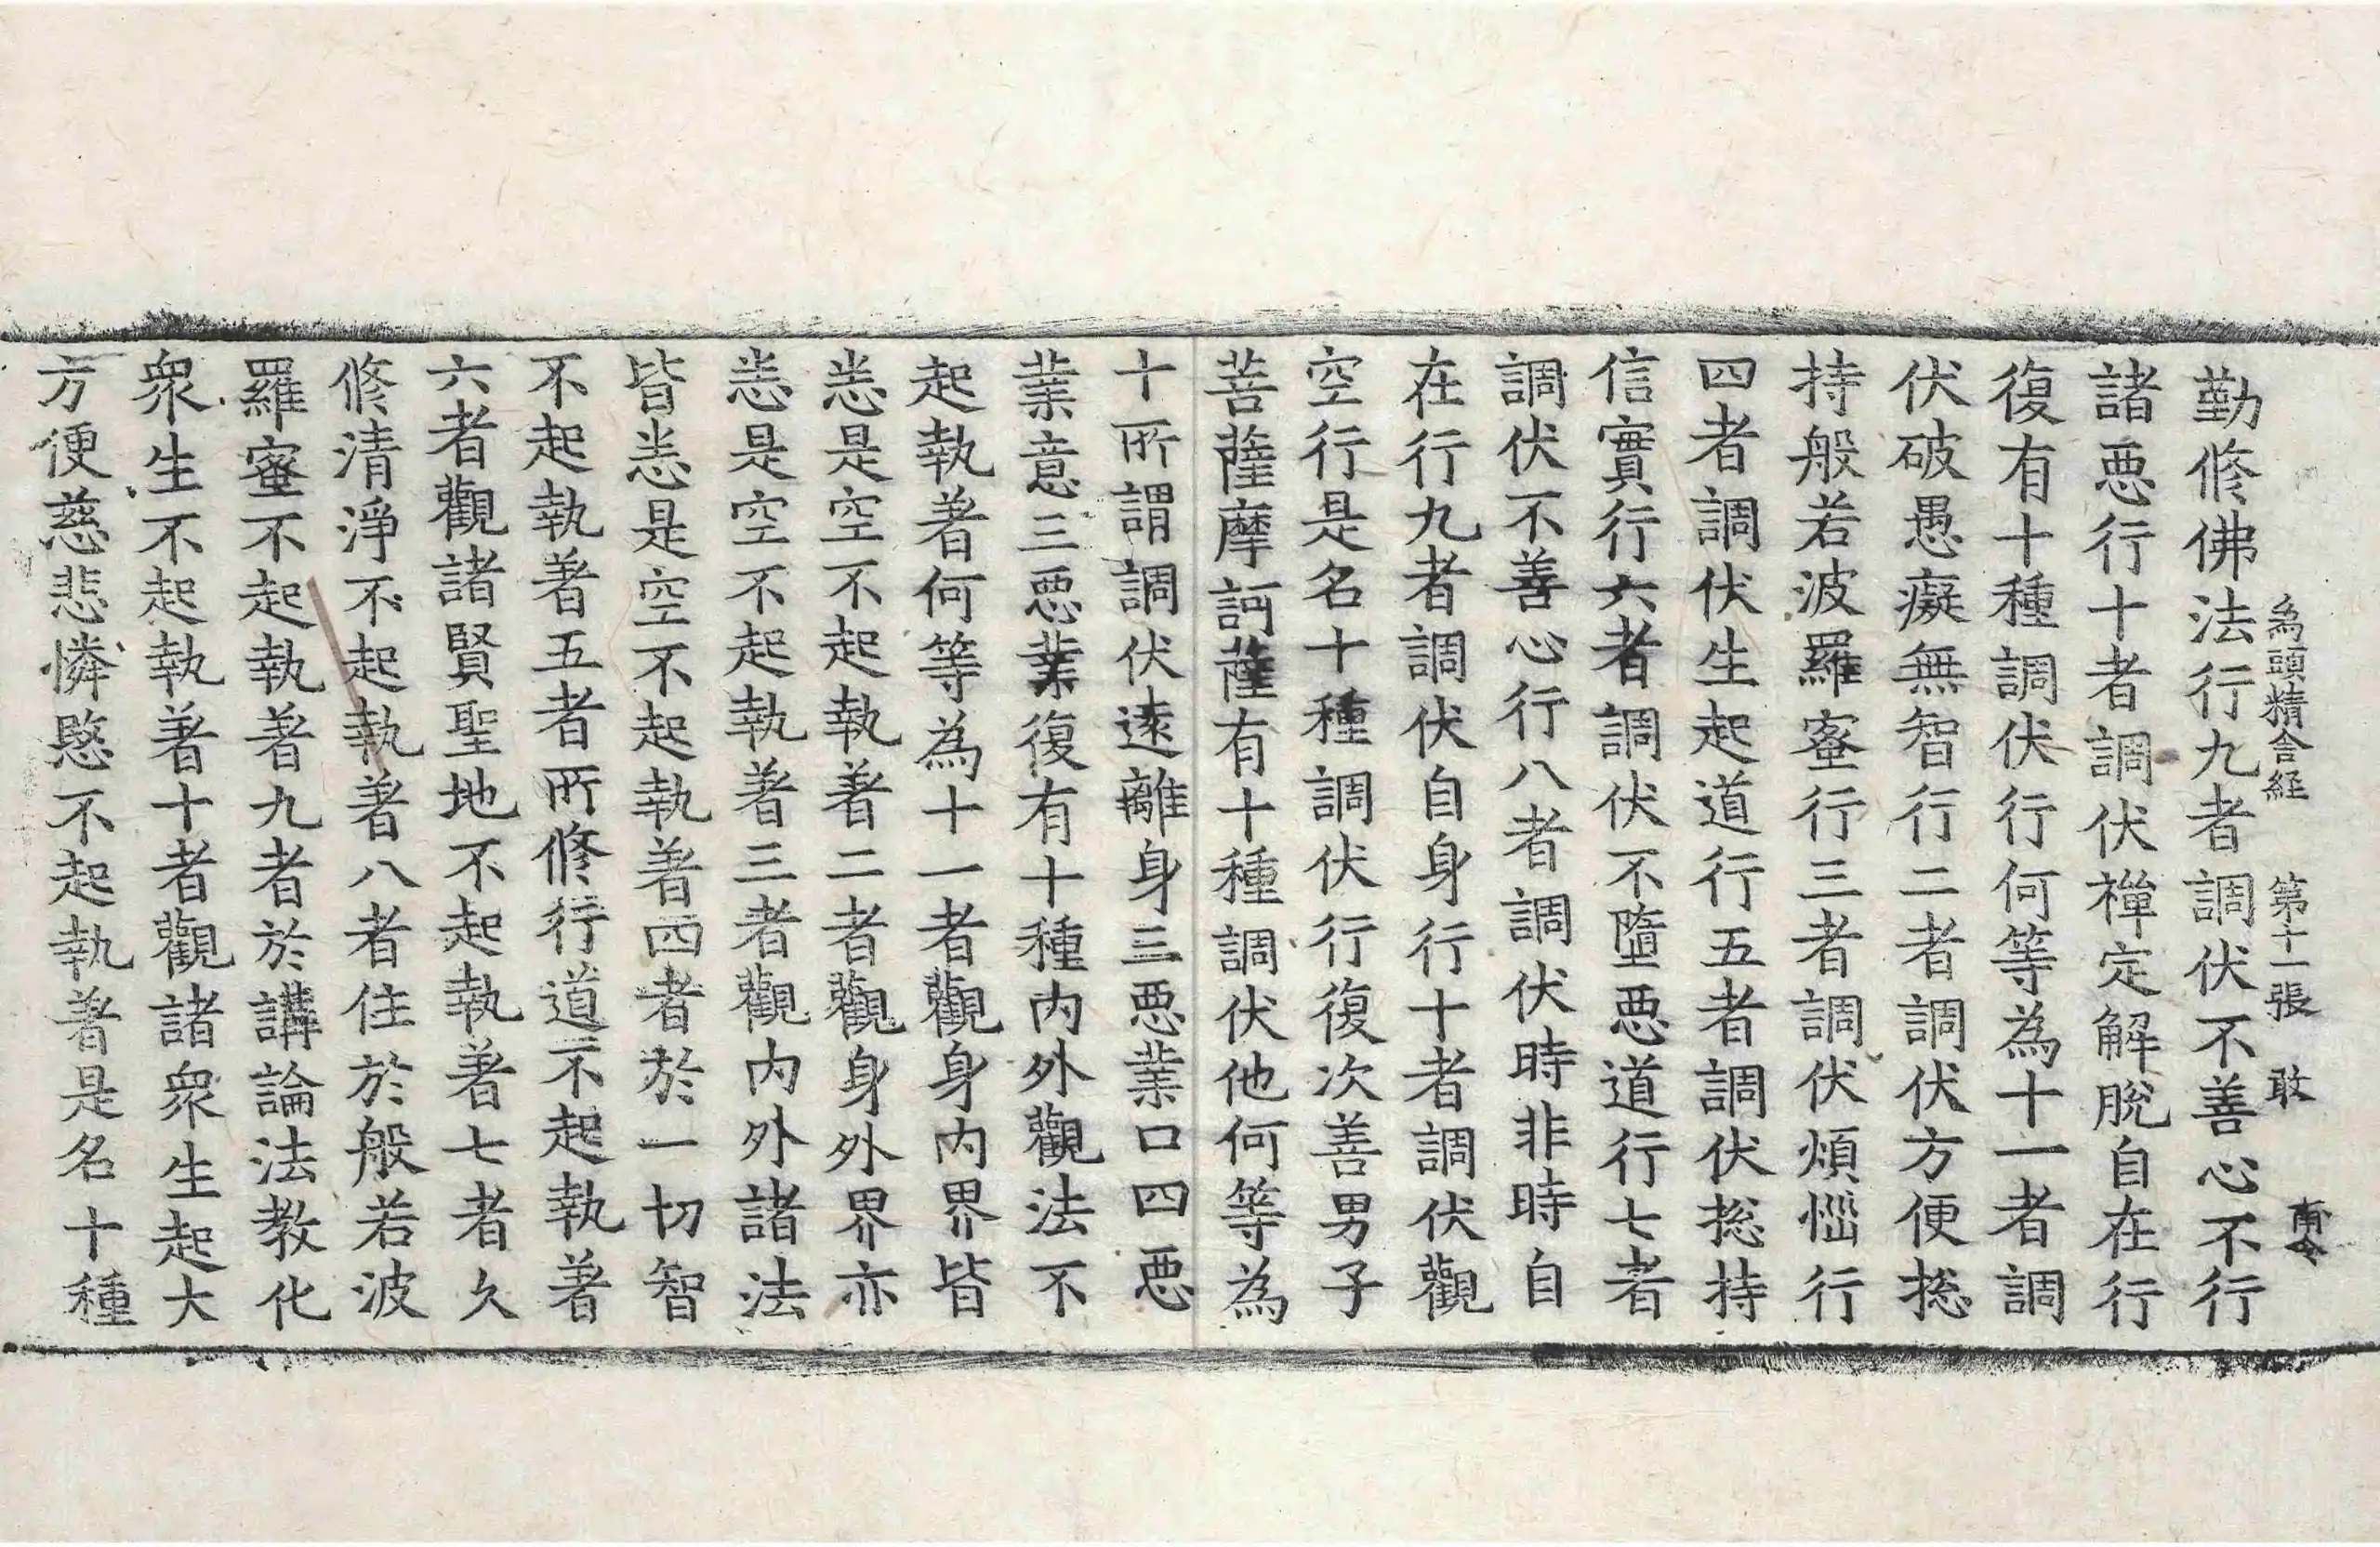 為頭精舍経 第十一張 敢
勤修佛法行九者調伏不善心不行
諸惡行十者調伏禪定解脫自在行
復有十種調伏行何等為十一者調
伏破愚癡無智行二者調伏方便揔
持般若波羅蜜行三者調伏煩惱行
四者調伏生起道行五者調伏揔持
信實行六者調伏不墮惡道行七者
調伏不善心行八者調伏時非時自
在行九者調伏自身行十者調伏觀
空行是名十種調伏行復次善男子
菩薩摩訶薩有十種調伏他何等為
十所謂調伏遠離身三惡業口四惡
業意三惡業復有十種内外觀法不
起執著何等為十一者觀身内界皆
悉是空不起執著二者觀身外界亦
悉是空不起執著三者觀内外諸法
皆悉是空不起執著四者於一切智
不起執著五者所修行道不起執著
六者觀諸賢聖地不起執著七者久
修清淨不起執著八者住於般若波
羅蜜不起執著九者於講論法教化
眾生不起執著十者觀諸眾生起大
方便慈悲憐愍不起執著是名十種